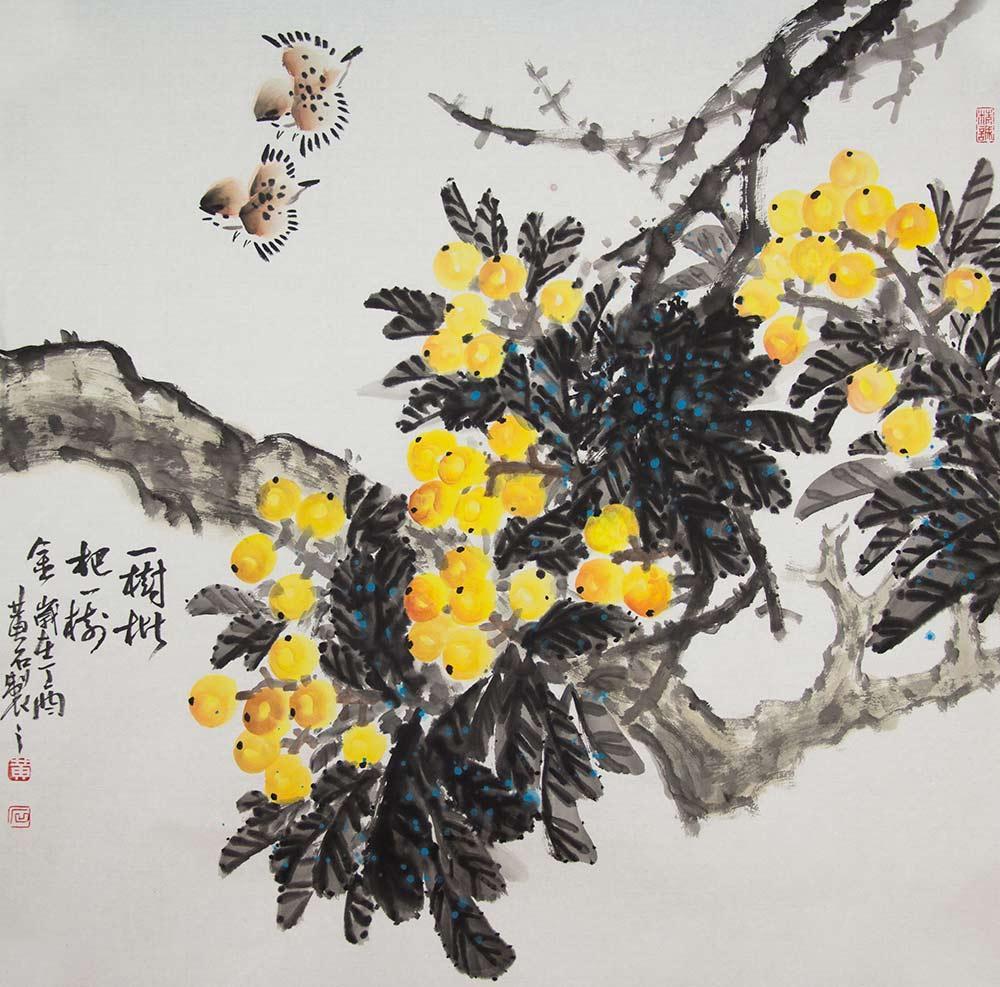 一樹枇
杷一樹
金
歲在丁酉
黃石製之
黃
石